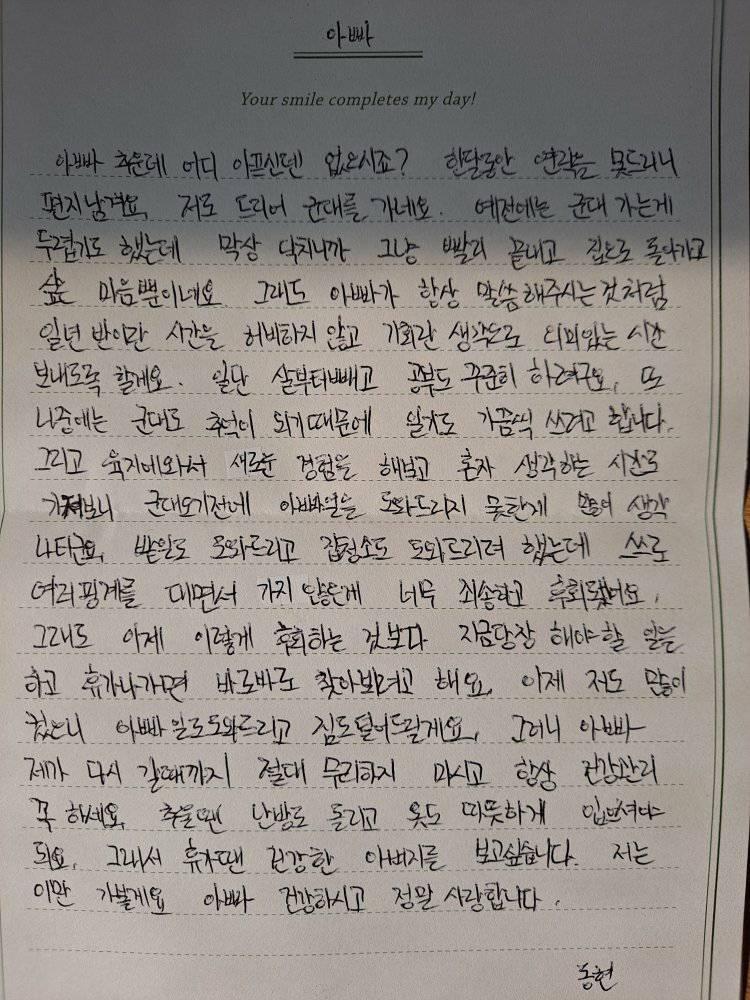 아빠
Your smile completes my day!
아빠 추운데 어디 아프신덴 없으시죠? 한달동안 연락을 못드리니
편지남겨요. 저도 드디어 군대를 가네요. 예전에는 군대 가는게
두렵기도 했는데 막상 닥치니까 그냥 빨리 끝내고 집으로 돌아가고
싶은 마음뿐이네요. 그래도 아빠가 항상 말씀해주시는것처럼
일년 반이란 시간을 허비하지 않고 기회란 생각으로 의미있는 시간
보내도록 할게요. 일단 살부터빼고 공부도 꾸준히 하려구요, 또
나중에는 군대도 추억이 되기때문에 일기도 가끔씩 쓰려고 합니다.
그리고 육지에와서 새로운 경험을 해보고 혼자 생각하는 시간도
가져보니 군대오기전에 아빠일을 도와드리지 못한게 많이 생각
나더군요, 밭일도 도와드리고 집청소도 도와드리려 했는데 스스로
여러핑계를 대면서 가지 않은게 너무 죄송하고 후회됐어요.
그래도 이제 이렇게 후회하는 것보다 지금당장 해야할 일을
하고 휴가나가면 바로바로 찾아뵈려고 해요. 이제 저도 많이
컸으니 아빠 일도도와드리고 짐도덜어드릴게요, 그러니 아빠
제가 다시 갈때까지 절대 무리하지 마시고 항상 건강관리
꼭 하세요. 추울땐 난방도 돌리고 옷도 따뜻하게 입으셔야
되요, 그래서 휴가땐 건강한 아버지를 보고싶습니다. 저는
이만 가볼게요 아빠 건강하시고 정말 사랑합니다.
동현